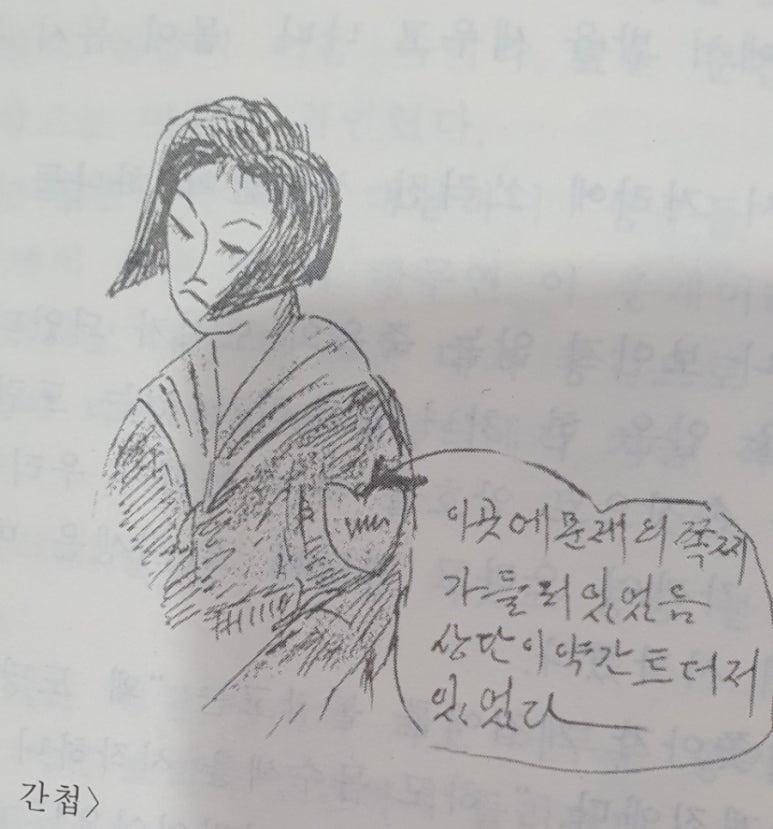 이곳에 문제의 쪽찌
가 들려 있었음
상단이 약간 트더저
있었다
간첩〉